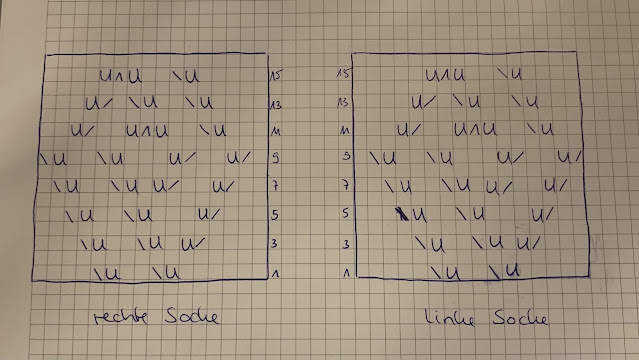 U∧U \U 15 15 U∧U \U
U/ \U \U 13 13 U/ \U \U
U/ U∧U \U 11 11 U/ U∧U \U
\U \U U/ U/ 9 9 \U \U U/ U/
\U \U U/ U/ 7 7 \U \U U/ U/
\U \U U/ 5 5 \U \U U/
\U \U U/ 3 3 \U \U U/
\U \U 1 1 \U \U
rechte Socke linke Socke